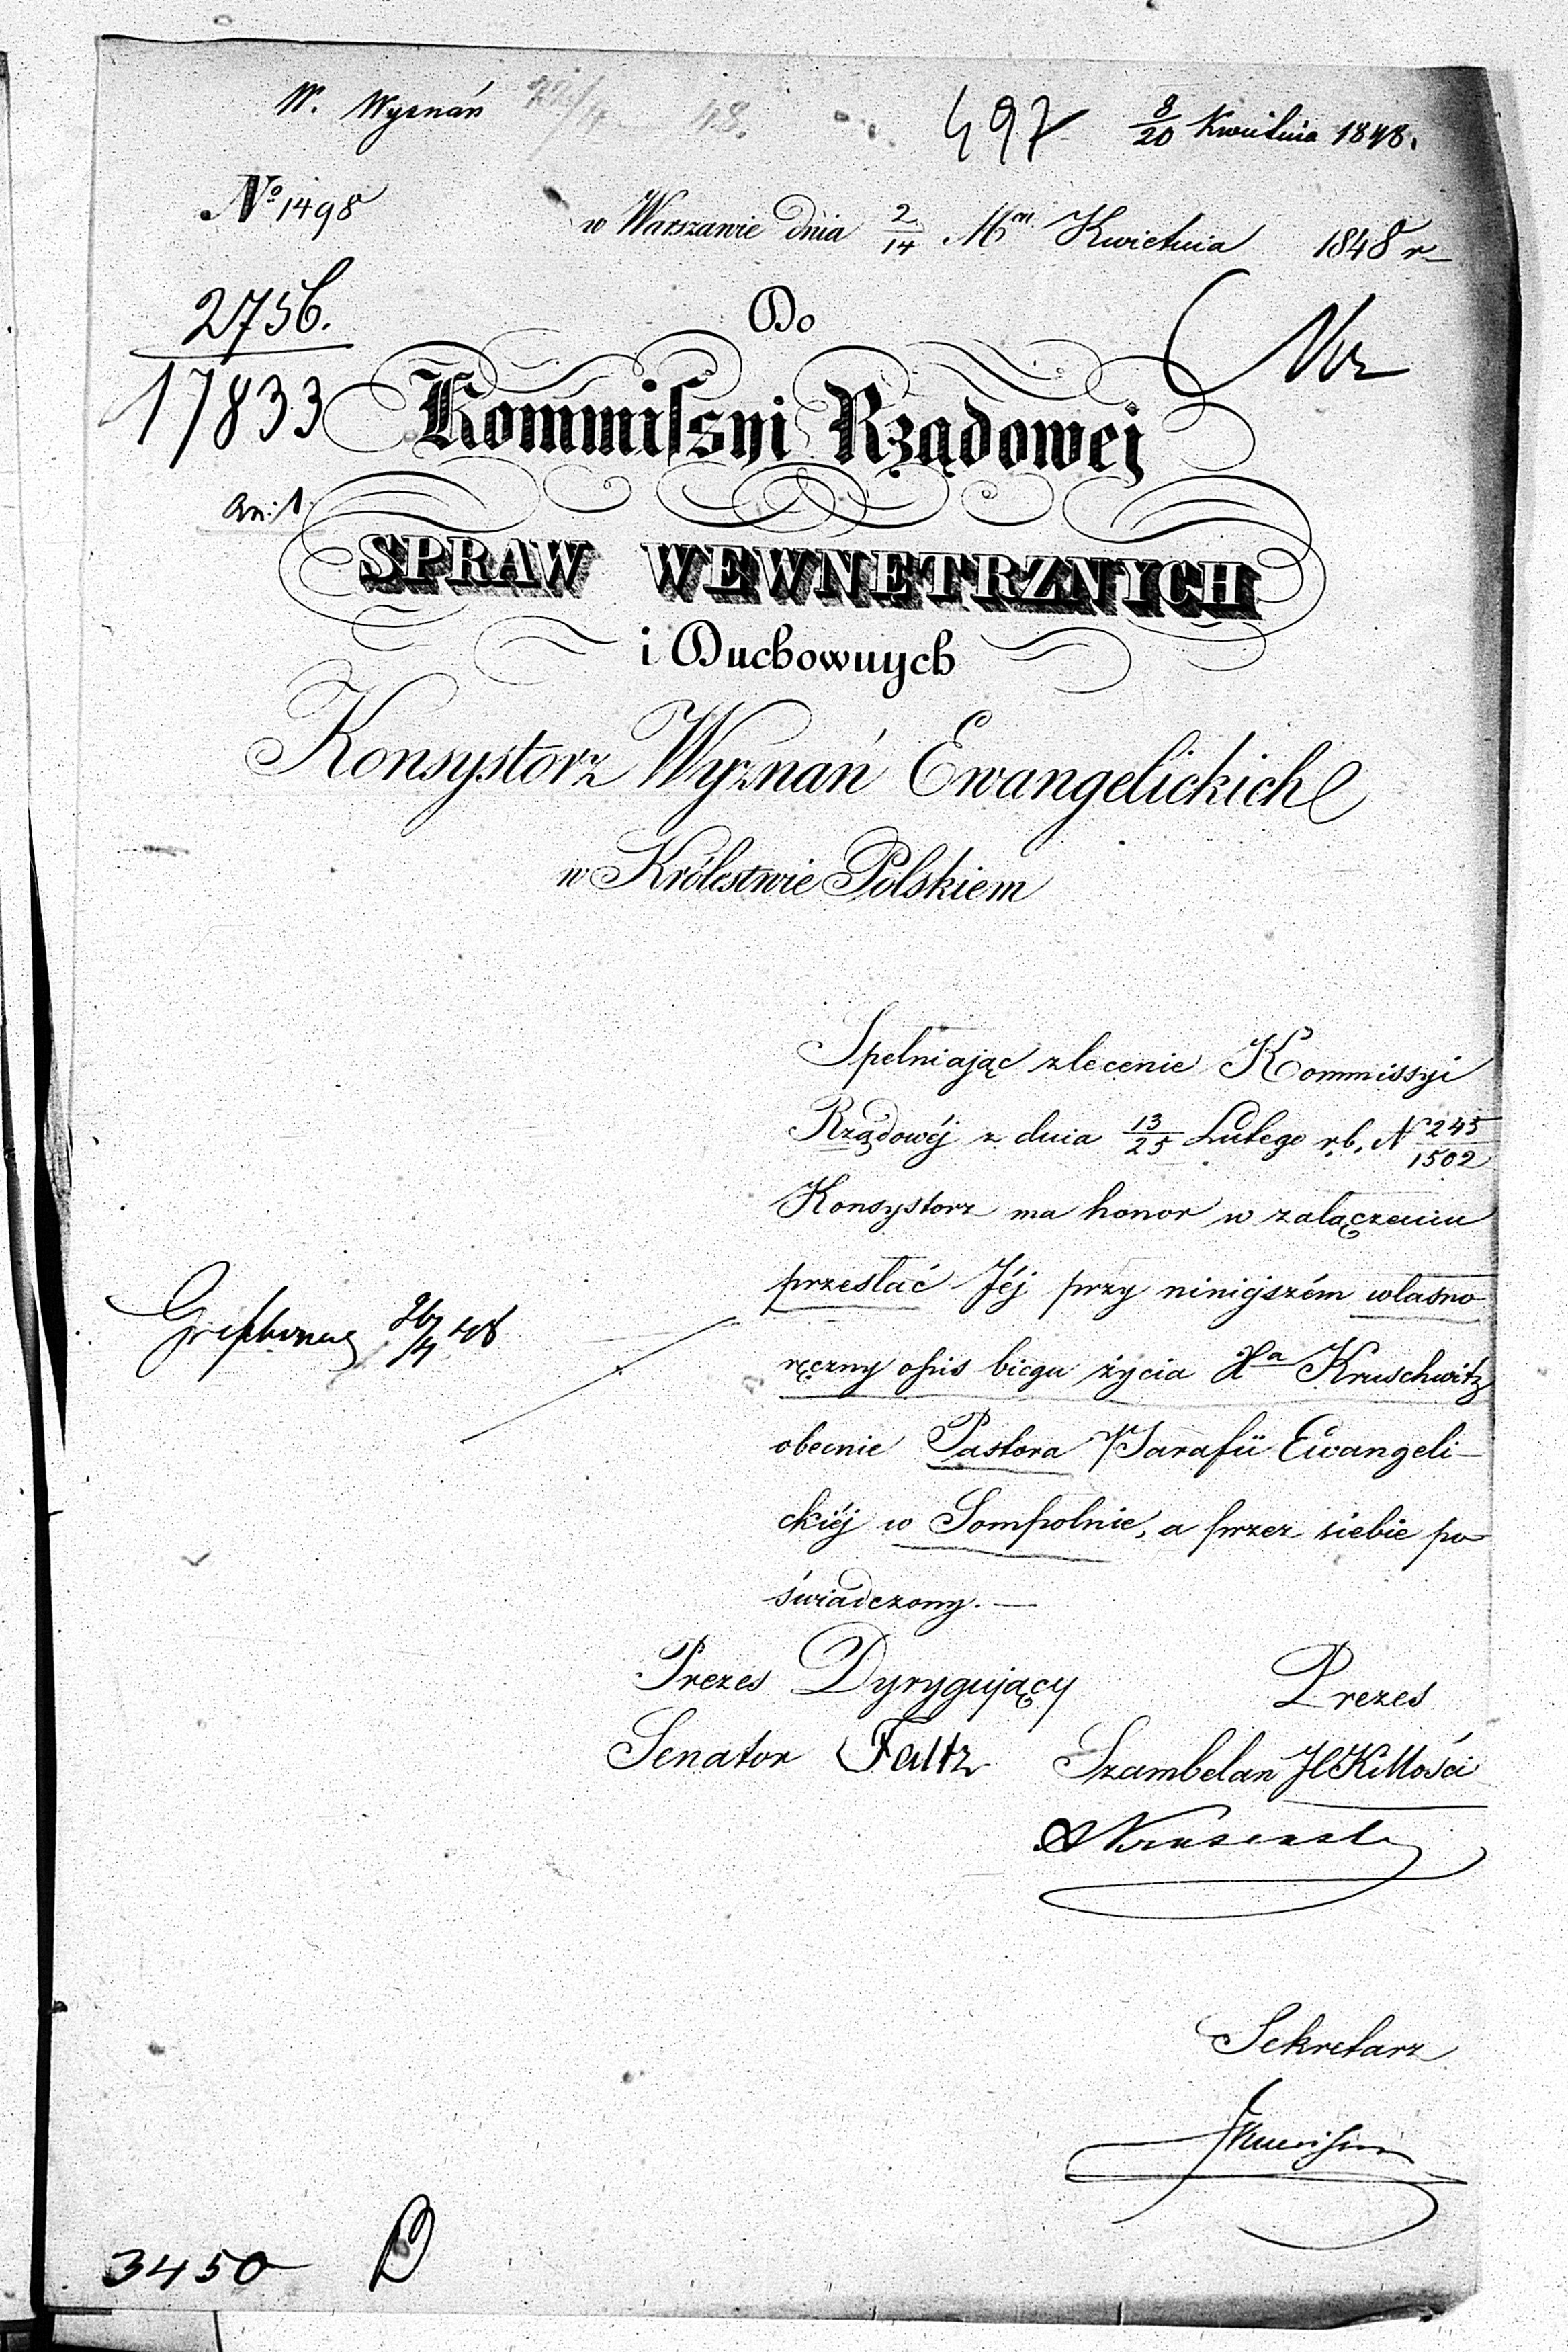 W. Wyznań 48. 497 8/20 Kwietnia 1848.
No 1498
w Warszawie dnia 2/14 Mca Kwietnia 1848 r
2756.
17833
An: 1.
Do
Kommissyi Rządowej
SPRAW WEWNETRZNYCH
i Duchownych
Konsystorz Wyznań Ewangelickich
w Królestwie Polskiem
Spełniając zlecenie Kommissyi
Rządowéj z dnia 13/25 Lutego r.b. N 245/1502
Konsystorz ma honor w załączeniu
przesłać Jéj przy niniejszém własno
ręczny opis biegu życia Xa Kruschwitz
obecnie Pastora Parafii Ewangeli-
ckiéj w Sompolnie, a przez siebie po-
świadczony. —
26/4 48
Prezes Dyrygujący
Senator
Prezes
Szambelan JCKMości
Sekretarz
3450